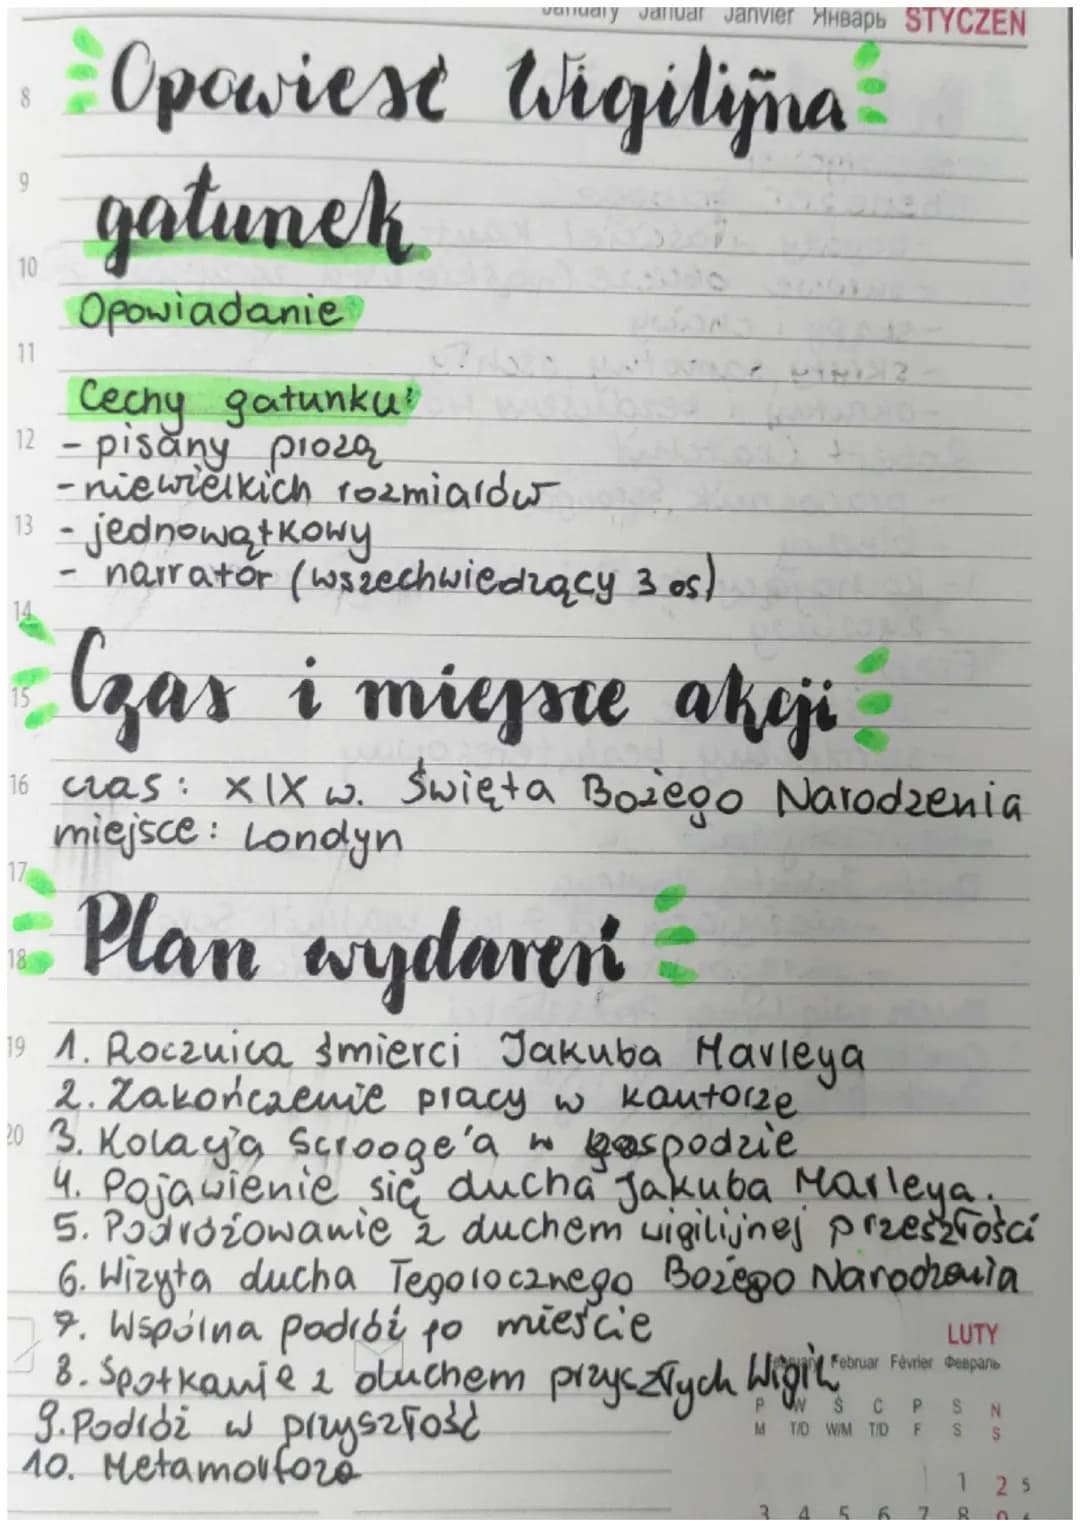 January Januar Janvier Январь STYCZEŃ
8
Opowieść Wigilijna
9
gatunek
10
Opowiadanie
11
Cechy gatunku:
12 - pisany prozą
- niewielkich rozmiarów
13 - jednowątkowy
- narrator (wszechwiedzący 3 os)
14
Czas i miejsce akcji
15
16 czas: XIX w. Święta Bożego Narodzenia
miejsce: Londyn
17
Plan wydareń
18
19 1. Rocznica śmierci Jakuba Marleya
2. Zakończenie pracy w kantorze
20 3. Kolacja Scrooge'a w gospodzie
4. Pojawienie się ducha Jakuba Marleya.
5. Podróżowanie z duchem wigilijnej przeszłości
6. Wizyta ducha Tegorocznego Bożego Narodzenia
7. Wspólna podróż po mieście
LUTY
February Februar Février Февраль
8. Spotkanie z duchem przyszłych Wigili
P W Ś C P S N
9. Podróż w przyszłość
M T/D W/M T/D F S S
10. Metamorfoza
1 2 5
3 4 5 6 7 8